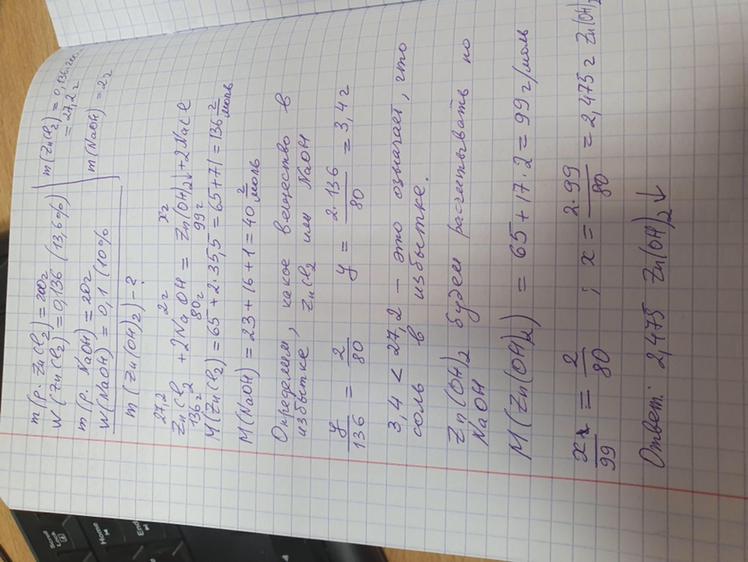 m(р. ZnCl₂) = 200г
W(ZnCl₂) = 0,136 (13,6%)
m(р. NaOH) = 20г
W(NaOH) = 0,1 (10%
m(Zn(OH)₂) - ?
m(ZnCl₂) = 0,136·200
= 27,2 г
m(NaOH) = 2г
27,2 2г xг
ZnCl₂ + 2NaOH = Zn(OH)₂↓ + 2NaCl
136г 80г 99г
M(ZnCl₂) = 65 + 2·35,5 = 65+71 = 136 г/моль
M(NaOH) = 23 + 16 + 1 = 40 г/моль
Определим, какое вещество в
избытке ZnCl₂ или NaOH
y/136 = 2/80 y = 2·136/80 = 3,4г
3,4 < 27,2 — это означает, что
соль в избытке.
Zn(OH)₂ будем расчитывать по
NaOH
M(Zn(OH)₂) = 65 + 17·2 = 99 г/моль
x/99 = 2/80 ; x = 2·99/80 = 2,475 г Zn(OH)₂
Ответ: 2,475 Zn(OH)₂↓
Home
End